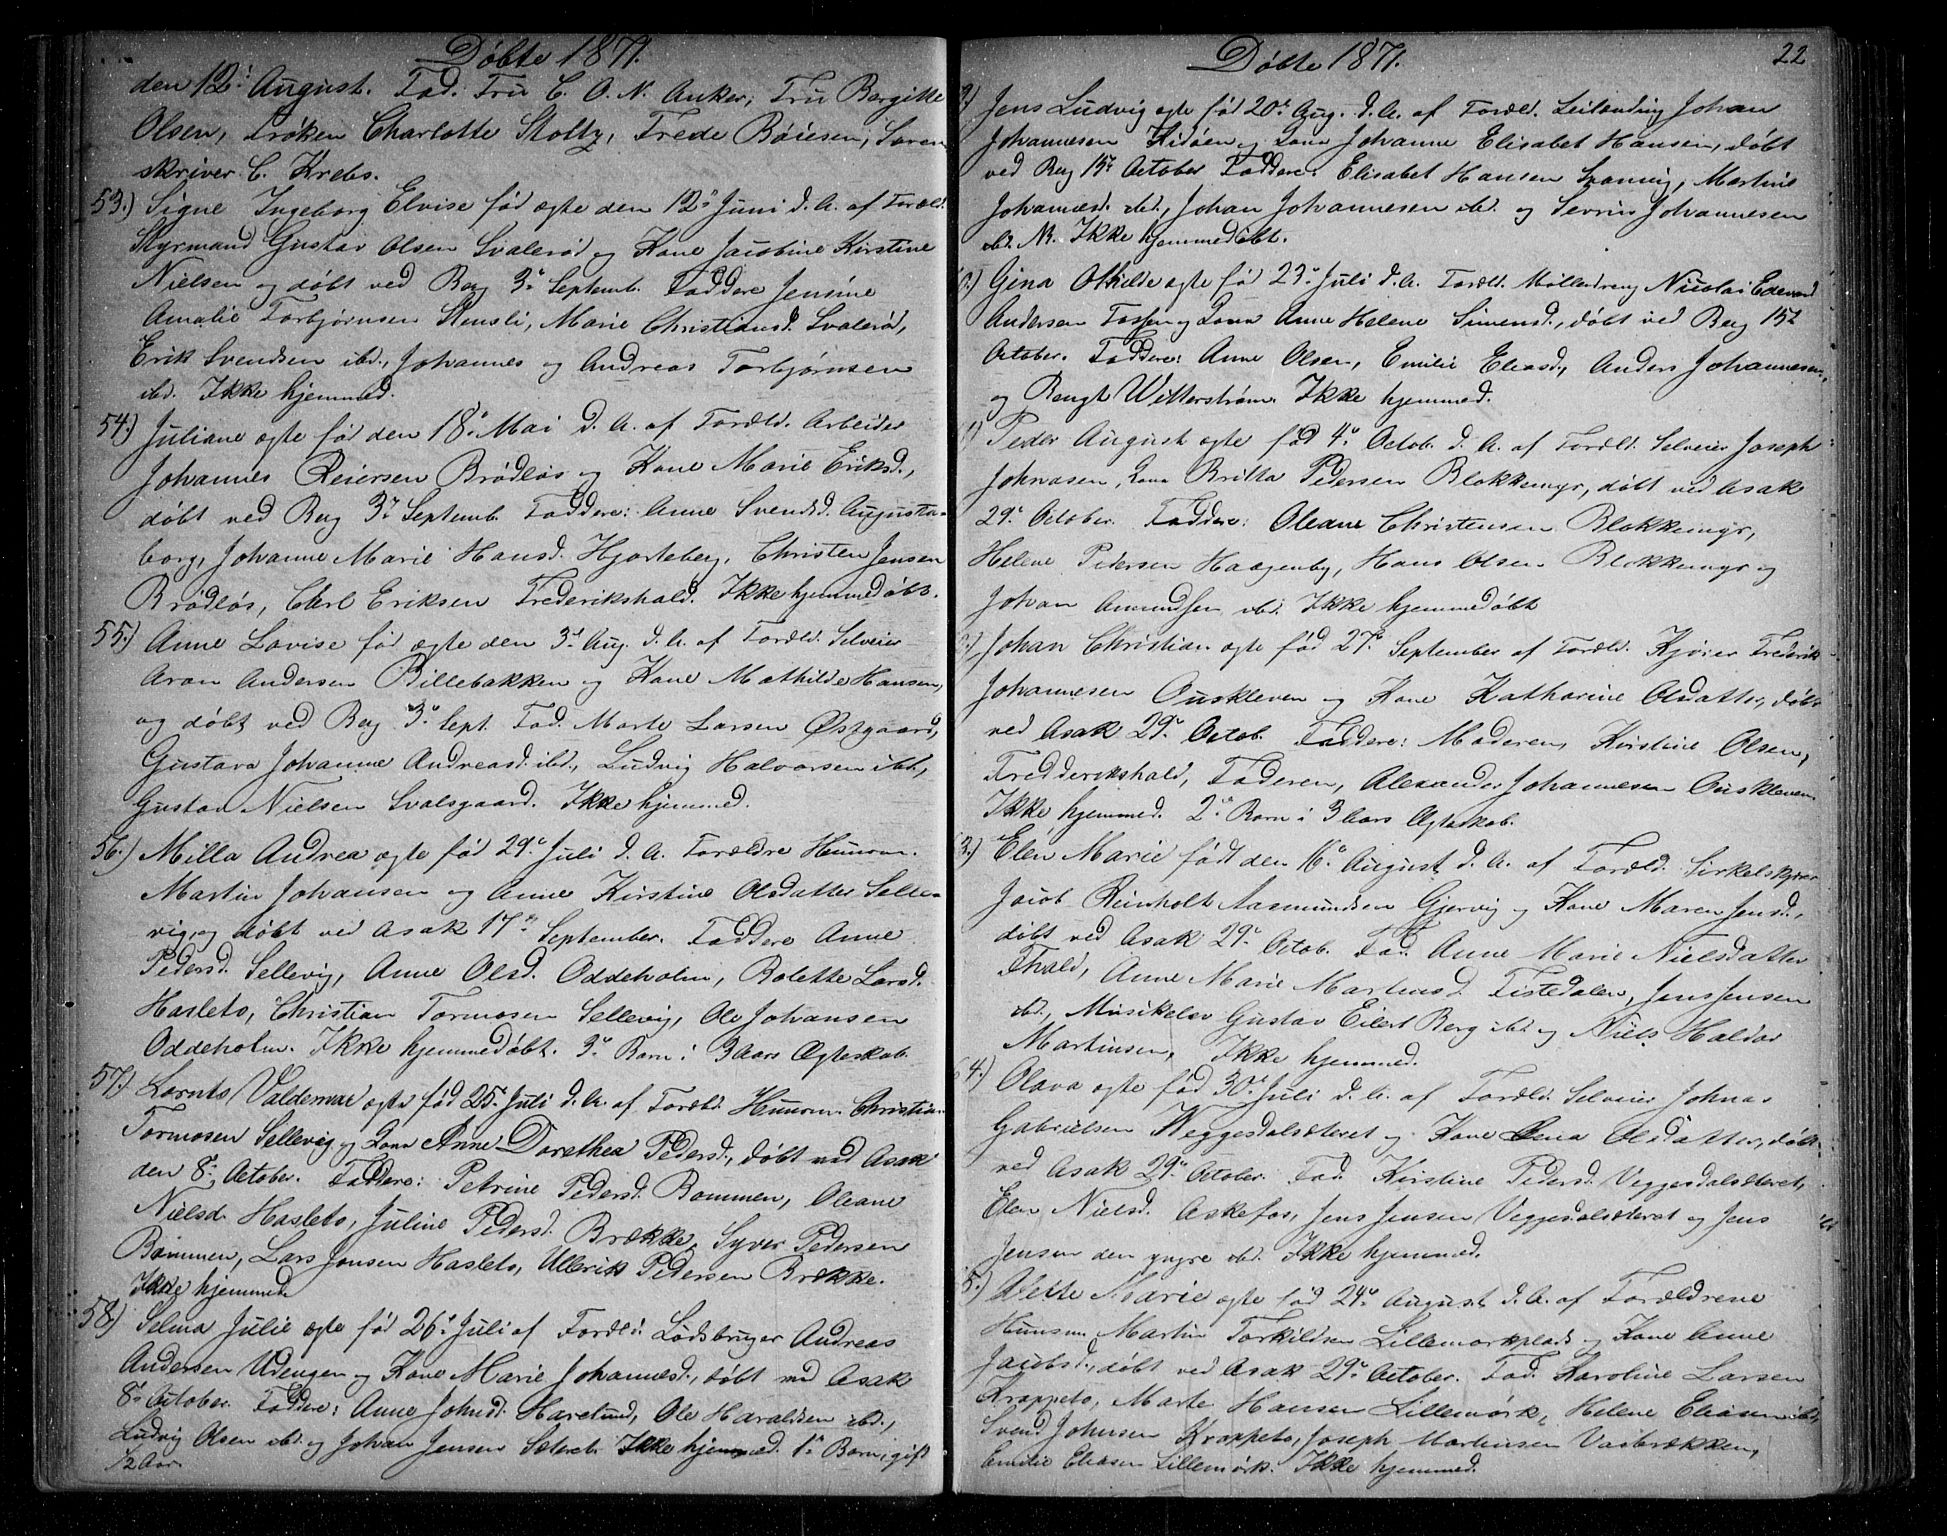 Döbte 1871.
den 12te August. Fad. Fru C. O. N. Anker, Fru Bergitte
Olsen, Frøken Charlotte Stoltz, Frede Böiesen, Soren-
skriver C. Krebs.
53.) Signe Ingeborg Elvise fød ægte den 12te Juni d. A. af Foræld.
Styrmand Gustav Olsen Svalerød og Kone Jacobine Kirstine
Nielsen og döbt ved Berg 3die Septemb. Faddere Jensine
Amalie Torbjørnsen Stensli, Marie Christiansd. Svalerød,
Erik Svendsen ibd., Johannes og Andreas Torbjørnsen
ibd. Ikke hjemmed.
54.) Juliane ægte fød den 18de Mai d. A. af Foræld. Arbeider
Johannes Reiersen Brödløs og Kone Marie Eriksd.,
döbt ved Berg 3die Septemb. Faddere: Anne Svendsd. Augusta-
borg, Johanne Marie Hansd. Hjorteberg, Christen Jensen
Brödløs, Carl Eriksen Frederikshald. Ikke hjemmedöbt.
55.) Anne Lovise fød ægte den 3die Aug. d. A. af Foræld. Selveier
Aron Andersen Billebakken og Kone Mathilde Hansen,
og döbt ved Berg 3die Sept. Fad. Marte Larsen Østgaard,
Gustava Johanne Andreasd. ibd., Ludvig Halvorsen ibd.,
Gustav Nielsen Svalsgaard. Ikke hjemmed.
56.) Milla Andrea ægte fød 29de Juli d. A. Forældre Huusm.
Martin Johansen og Anne Kirstine Olsdatter Selle-
vig, og döbt ved Asak 17de September. Faddere Anne
Pedersd. Sellevig, Anne Olsd. Oddeholm, Bolette Larsd.
Hasleto, Christian Tormosen Sellevig, Ole Johansen
Oddeholm. Ikke hjemmedöbt. 3die Barn i 3 Aars Ægteskab.
57.) Lornts Valdemar ægte fød 25de Juli d. A. af Foræld. Huusm. Christian
Tormosen Sellevig og Kone Anne Dorethea Pedersd., döbt ved Asak
den 8de October. Faddere: Petrine Pedersd. Bommen, Oleane
Nielsd. Hasleto, Juline Pedersd. Brække, Syver Pedersen
Bommen, Lars Jensen Hasleto, Ullerik Pedersen Brække.
Ikke hjemmed.
58) Selma Julie ægte fød 26de Juli af Foræld. Lodsbruger Andreas
Andersen Udengen og Kone Marie Johannesd., döbt ved Asak
8de October. Faddere: Anne Johnsd. Harelund, Ole Haraldsen ibd.,
Ludvig Olsen ibd. og Johan Jensen Sæteret. Ikke hjemmed. 1ste Barn, gift
1/2 Aar.
Döbte 1871.
22
9) Jens Ludvig ægte fød 20de Aug. d. A. af Foræld. Leilænding Johan
Johannesen Kidøen og Kone Johanne Elisabet Hansen, döbt
ved Berg 15de October Faddere: Elisabet Hansen Sponvig, Martine
Johannesd. ibd., Johan Johannesen ibd. og Severin Johannesen
ibd. NB. Ikke hjemmedöbt.
0.) Gina Othilde ægte fød 23de Juli d. A. Foræld. Mølledreng Nicolai Edvard
Andersen Fossen og Kone Anne Helene Simensd., döbt ved Berg 15de
October. Faddere: Anne Olsen, Emilie Eliasd., Anders Johannesen,
og Bengt Witterstrøm. Ikke hjemmed.
1) Peder August ægte fød 4de Octob. d. A. af Foræld. Selveier Joseph
Johnasen, Kone Britta Pedersen Blokkemyr, döbt ved Asak
29de October. Faddere: Oleane Christensen Blokkemyr,
Helene Pedersen Haagenby, Hans Olsen Blokkemyr og
Johan Amundsen ibd. Ikke hjemmedöbt
2) Johan Christian ægte fød 27de September af Foræld. Kjører Frederik
Johannesen Ouskleven og Kone Katharine Olsdatter, döbt
ved Asak 29de Octob. Faddere: Moderen, Kirstine Olsen,
Fredderikshald, Faderen, Alexander Johannesen Ouskleven.
Ikke hjemmed. 2det Barn i 3 Aars Ægteskab.
3.) Elen Marie født den 16de August d. A. af Foræld. Sirkelskjærer
Jacob Reinholt Aasmundsen Gjervig og Kone Maren Jensd.,
döbt ved Asak 29de Octob. Fad. Anne Marie Nielsdatter
Fhald, Anne Marie Martinsd. Tistedalen, Jens Jensen
ibd., Musikelev Gustav Eilert Berg ibd. og Niels Haldor
Martinsen, Ikke hjemmed.
64.) Olava ægte fød 30de Juli d. A. af Foræld. Selveier Johnas
Gabrielsen Weggesdalsæteret og Kone Lena Olsdatter, döbt
ved Asak 29de October. Fad. Kirstine Pedersd. Veggesdalsæteret,
Elen Nielsd. Askefos, Jens Jensen Veggesdalsæteret og Jens
Jensen den yngre ibd. Ikke hjemmed.
5.) Mette Marie ægte fød 24de August d. A. af Forældrene
Huusm. Martin Torkildsen Lillemørkplads og Kone Anne
Jacobsd., döbt ved Asak 29de October. Fad. Karoline Larsen
Krappeto, Marte Hansen Lillemørk, Helene Eliasen ibd,
Svend Johnsen Krappeto, Joseph Martinsen Vasbrækken,
Emilie Eliasen Lillemørk. Ikke hjemmed.